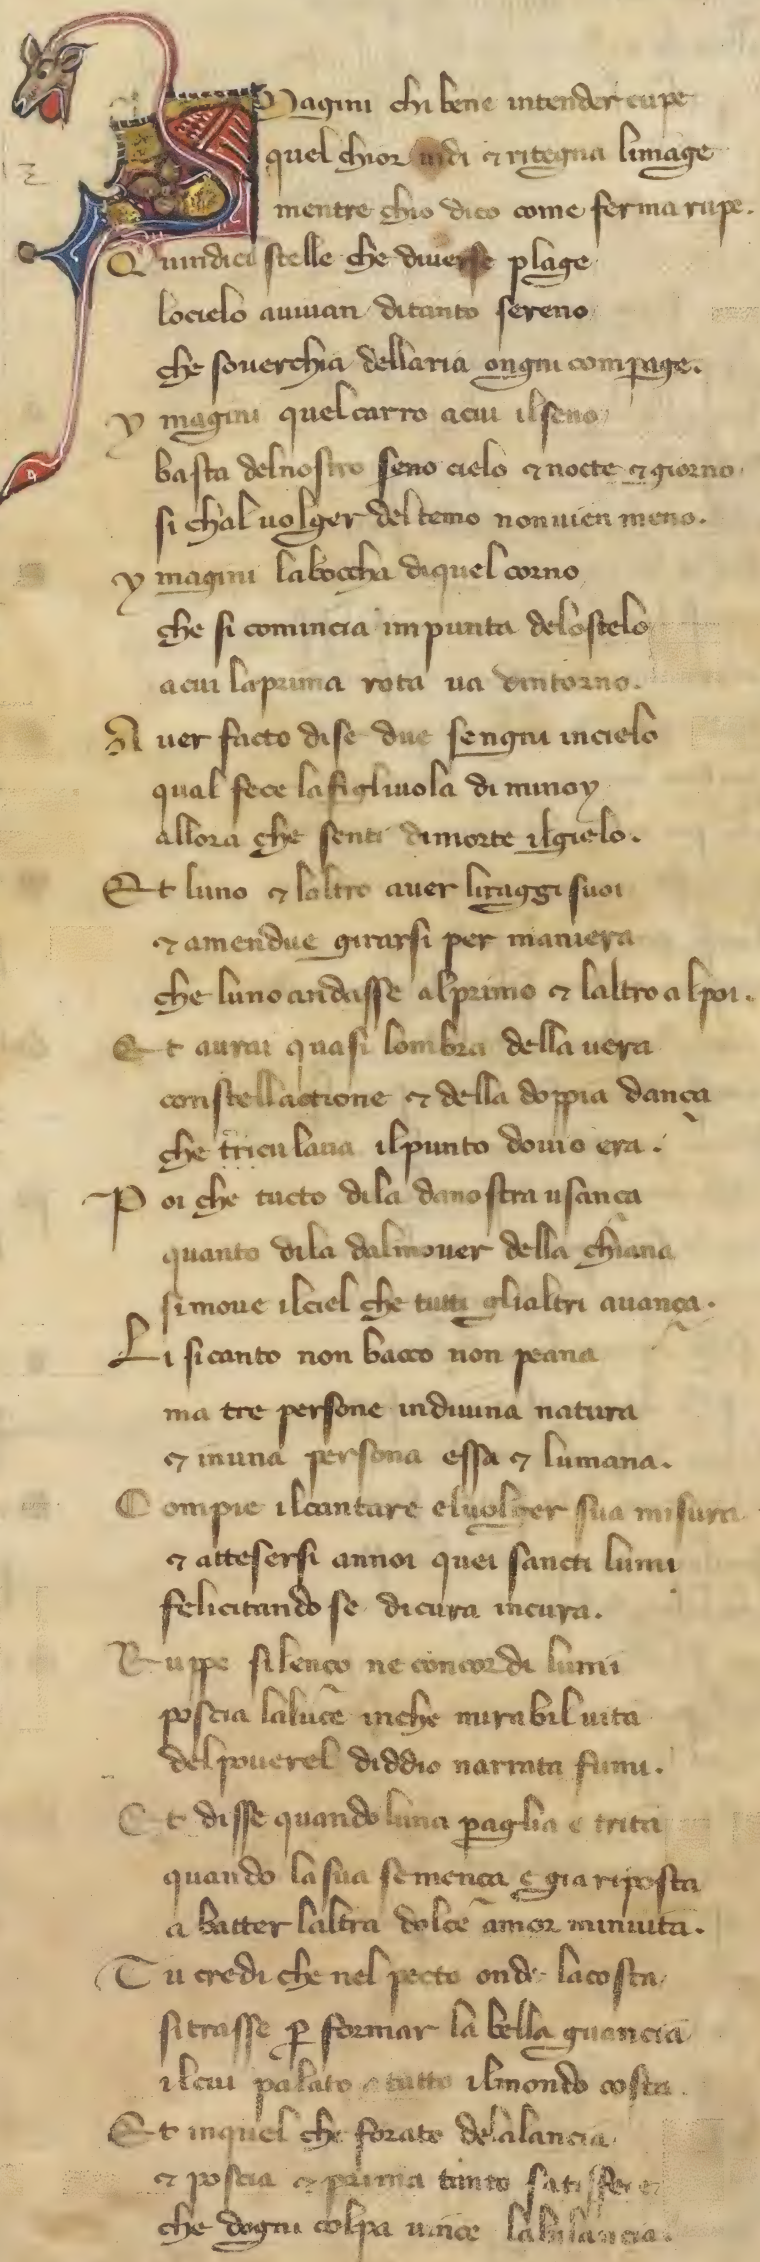 Ymagini chi bene intender cupe
quel chior uidi ⁊ ritegna limage
mentre chio dico come ferma rupe.
Quindici stelle che diuerse plage
locielo auiuan ditanto sereno
che souerchia dellaria ongni compage.
ymagini quel carro acui ilseno
basta delnostro seno cielo ⁊ nocte ⁊ giorno
si chal uolger deltemo nonuien meno.
ymagini laboccha diquel corno
che si comincia impunta delostelo
acui laprima rota ua dintorno.
Auer facto dise due sengni incielo
qual fece lafigliuola di minoy
allora che senti dimorte ilgielo.
Et luno ⁊ laltro auer liraggi suoi
⁊ amendue girarsi per maniera
che luno andasse alprimo ⁊ laltro alpoi.
Et aurai quasi lombra della uera
constellactione ⁊ della doppia dança
che triculaua ilpunto douio era.
Poi che tucto dila danostra usança
quanto dila dalmouer della chiana
simoue ilciel che tutti glialtri auança.
Li sicanto non bacco non peana
ma tre persone indiuina natura
⁊ inuna persona essa ⁊ lumana.
Compie ilcantare eluolger sua misura
⁊ attesersi annoi quei sancti lumi
felicitando se dicura incura.
Ruppe silenço ne concordi lumi
poscia laluce inche mirabil uita
delpouerel diddio narrata fumi.
Et disse quando luna paglia e trita
quando lasua semença e gia riposta
a batter laltra dolce amor minuita.
Tu credi che nel pecto onde lacosta
sitrasse p̲ formar la bella guancia
ilcui palato a tutto ilmondo costa.
Et inquel che forato dalalancia
⁊ poscia ⁊ prima tanto satisfece
che dogni colpa uince labilancia.